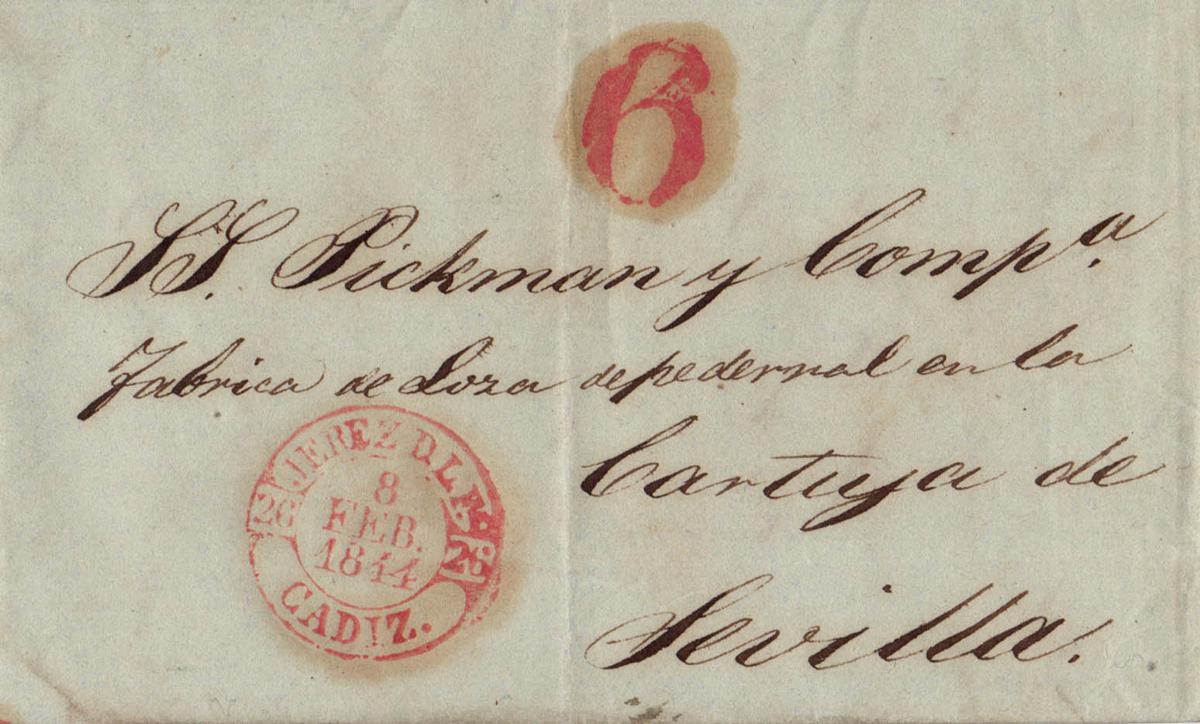 6
SS. Pickman y Comp.a
fabrica de Loza de pedernal en la
Cartuja de
Sevilla.
JEREZ D L F.
26 26
8
FEB.
1844
CADIZ.